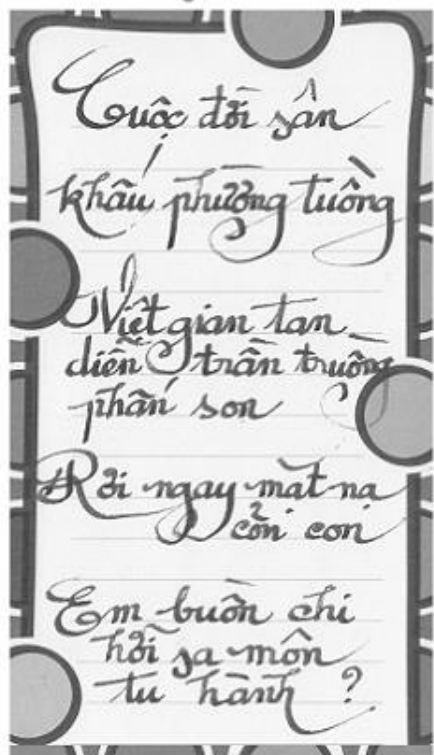 Cuộc đời sân
khấu phường tuồng
Việt gian tan
diễn trần truồng
phấn son
Rơi ngay mặt nạ
cỏn con
Em buồn chi
hỡi sa môn
tu hành ?